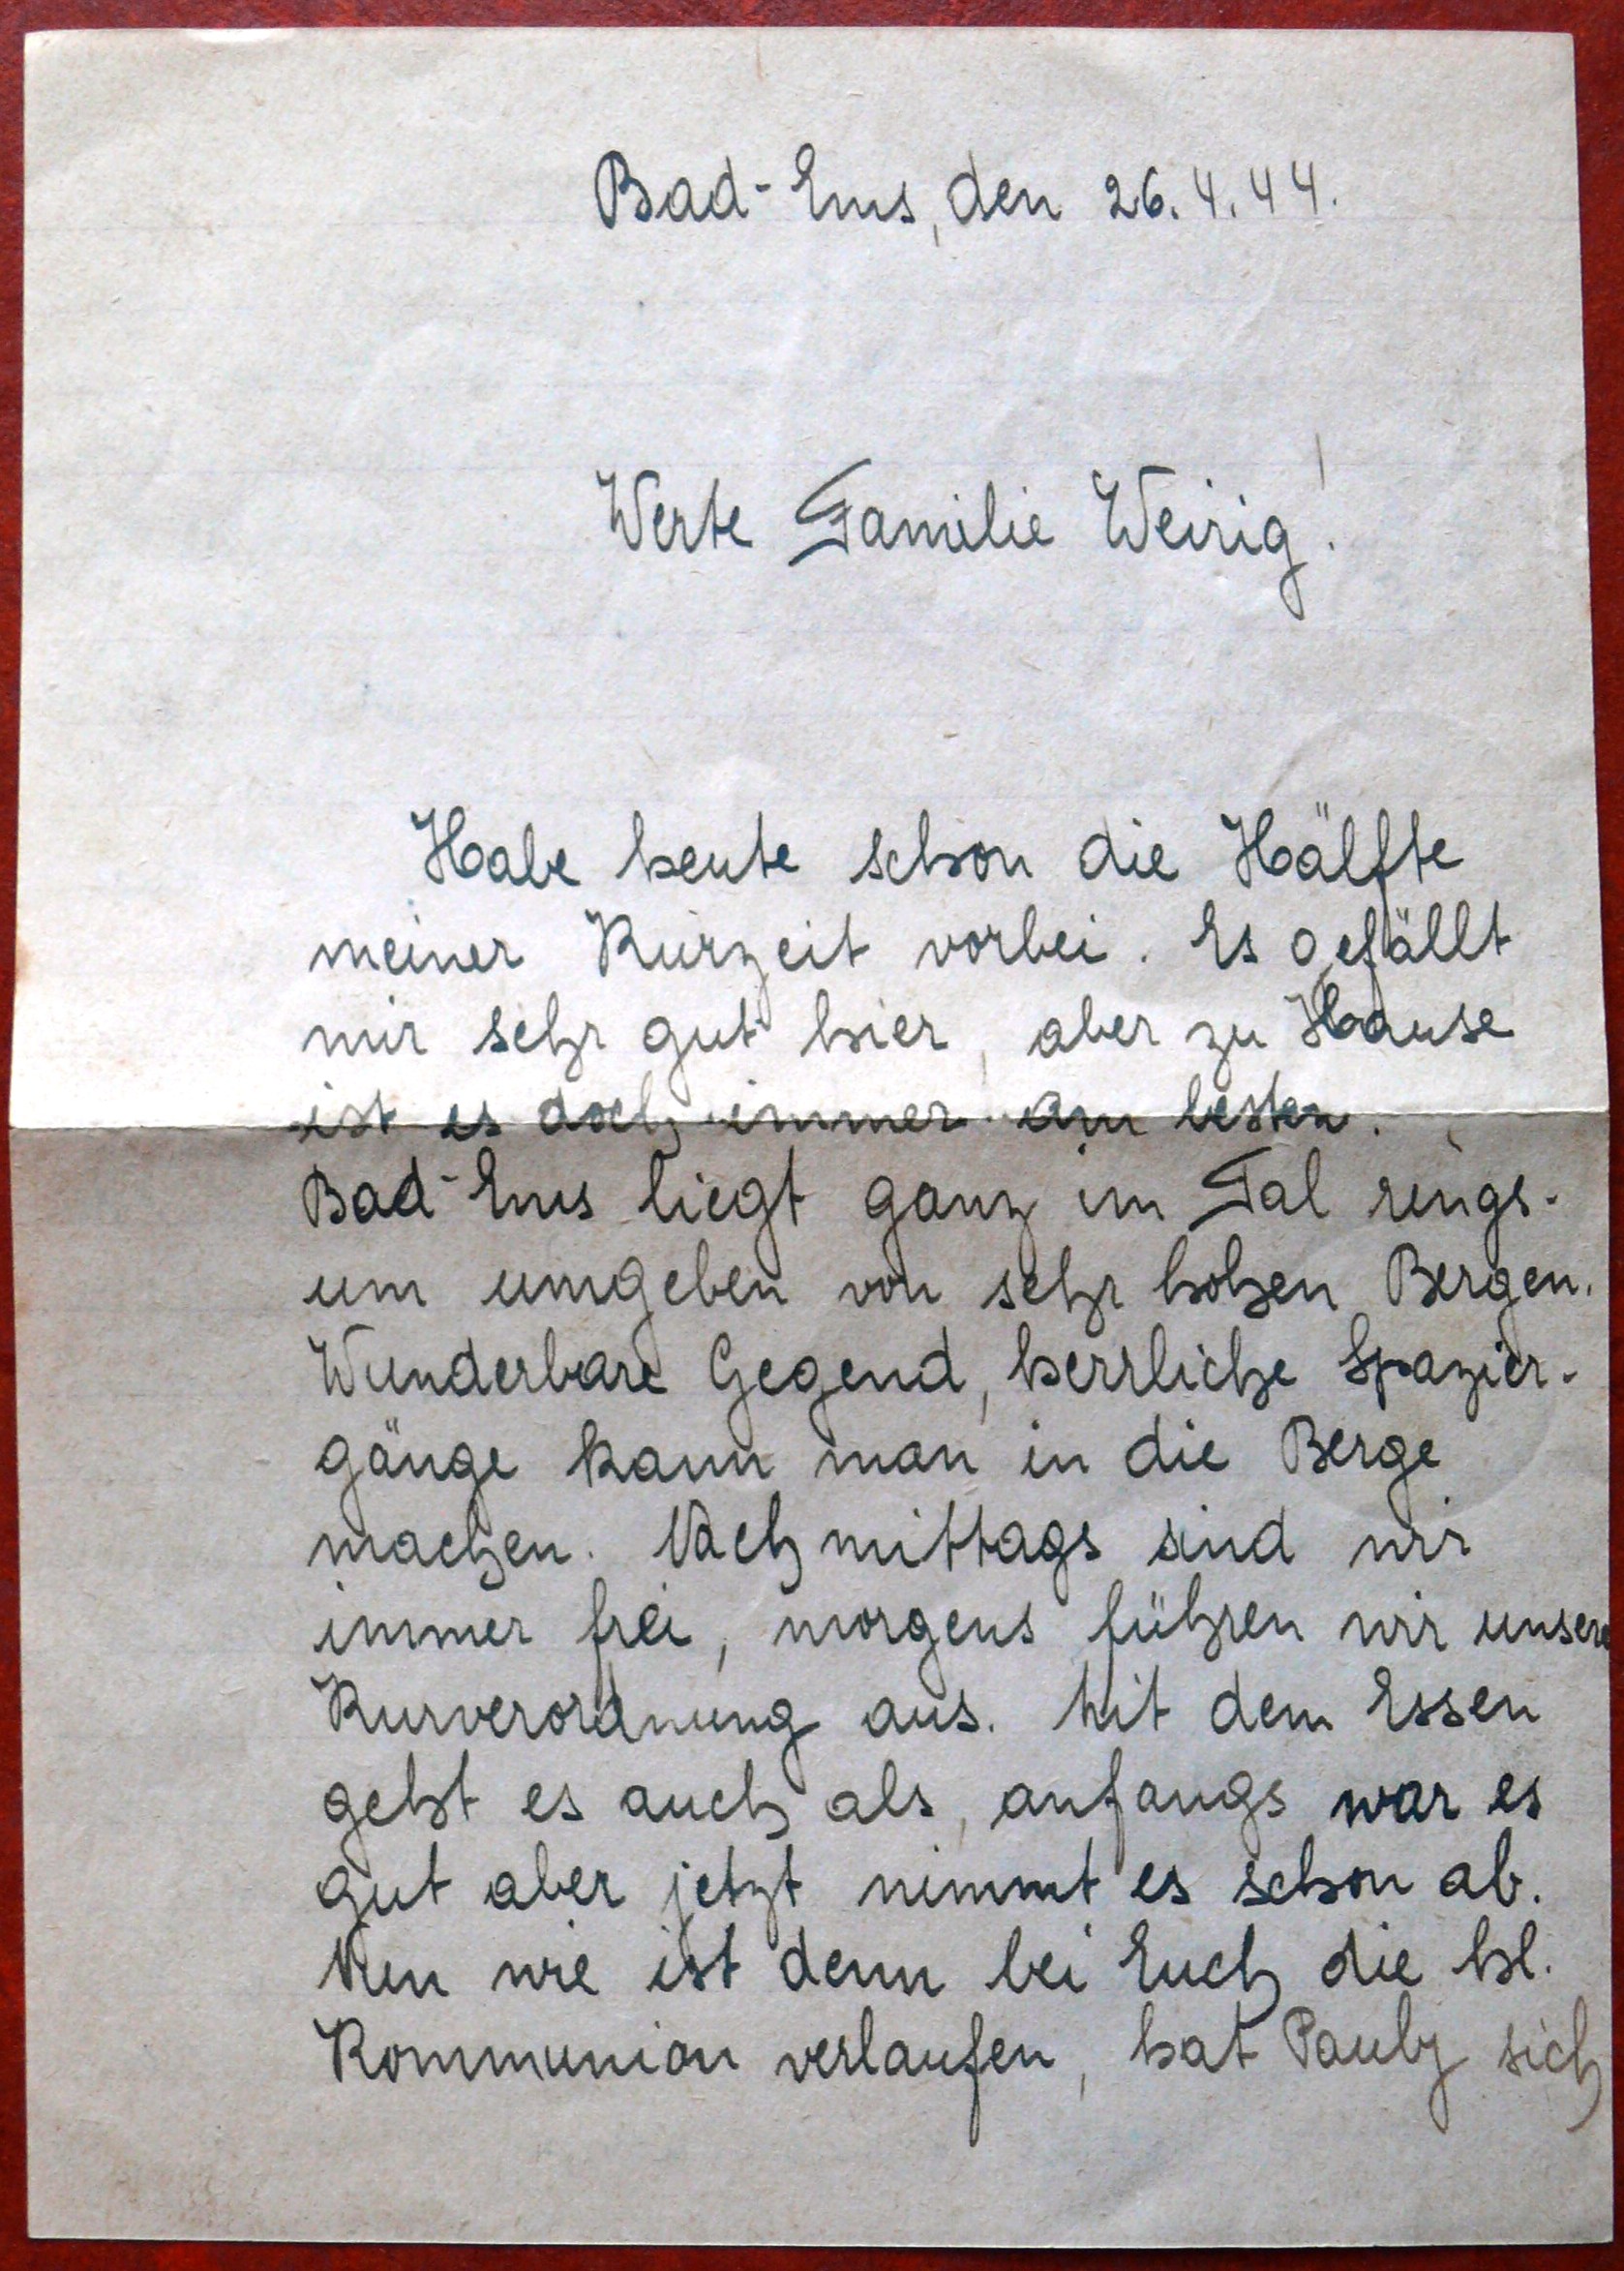 Bad-Ems, den 26.4.44.
Werte Familie Weirig!
Habe heute schon die Hälfte
meiner Kurzeit vorbei. Es gefällt
mir sehr gut hier, aber zu Hause
ist es doch immer am besten.
Bad-Ems liegt ganz im Tal rings-
um umgeben von sehr hohen Bergen.
Wunderbare Gegend, herrliche Spazier-
gänge kann man in die Berge
machen. Nachmittags sind wir
immer frei, morgens führen wir unsere
Kurverordnung aus. Mit dem Essen
geht es auch als, anfangs war es
gut aber jetzt nimmt es schon ab.
Nun wie ist denn bei Euch die hl.
Kommunion verlaufen, hat Pauly sich